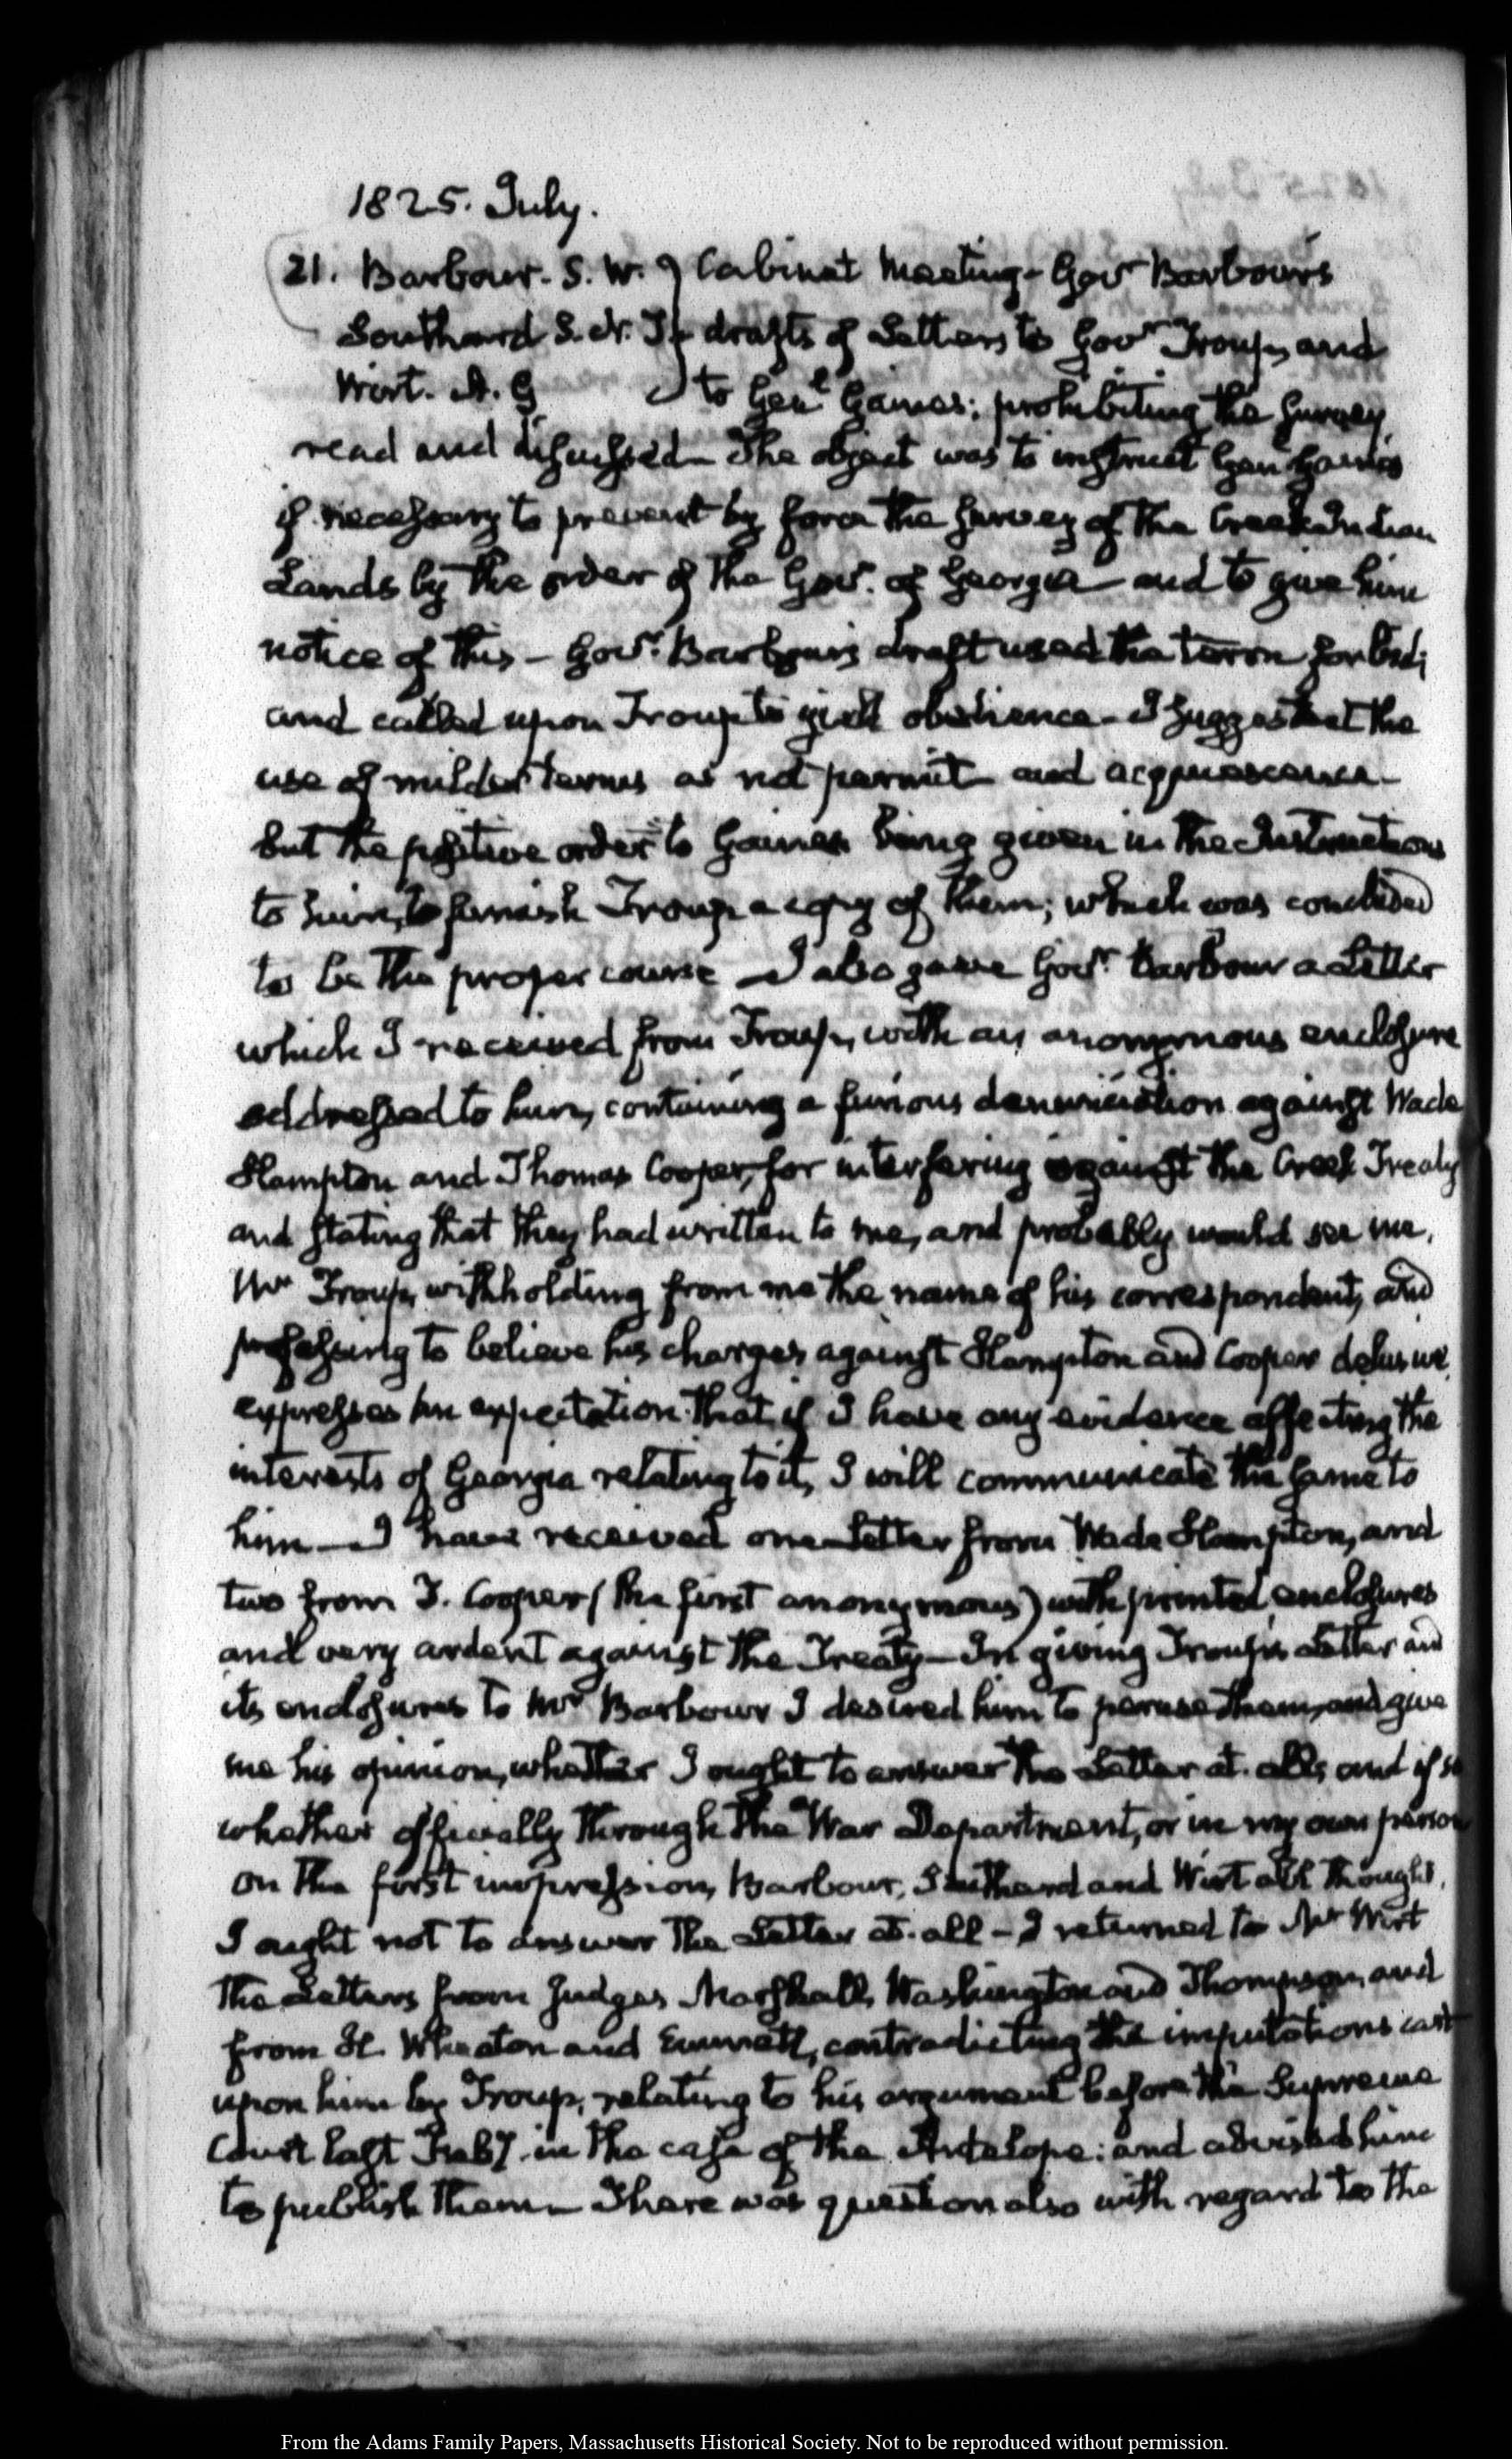 1825. July.
21. Barbour. S. W. } Cabinet Meeting - Govr Barbour's
Southard S. N. J. } drafts of Letters to Govr Troup, and
Wirt. A. G } to Genl Gaines; prohibiting the survey,
read and discussed - The object was to instruct Genl Gaines
if necessary to prevent by force the survey of the Creek Indian
Lands by the order of the Govr. of Georgia - and to give him
notice of this - Govr. Barbour's draft used the term forbid;
and called upon Troup to yield obedience - I suggested the
use of milder terms as not permit - and acquiescence -
but the positive order to Gaines being given in the Instructions
to him, to furnish Troup a copy of them; which was concluded
to be the proper course - I also gave Govr. Barbour a Letter
which I received from Troup, with an anonymous enclosure
addressed to him, containing a furious denunciation against Wade
Hampton and Thomas Cooper, for interfering against the Creek Treaty
and stating that they had written to me, and probably would see me.
Mr Troup, withholding from me the name of his correspondent, and
professing to believe his charges against Hampton and Cooper delusive,
expresses an expectation that if I have any evidence affecting the
interests of Georgia relating to it, I will communicate the same to
him - I have received one Letter from Wade Hampton, and
two from T. Cooper (the first anonymous) with printed enclosures
and very ardent against the Treaty - In giving Troup's Letter and
its enclosures to Mr Barbour I desired him to peruse them, and give
me his opinion, whether I ought to answer the Letter at all; and if so
whether officially through the War Department, or in my own person
on the first impression, Barbour, Southard and Wirt all thought,
I ought not to answer the Letter at all - I returned to Mr Wirt
the Letters from Judges Marshall, Washington and Thompson, and
from H. Wheaton and Emmett, contradicting the imputations cast
upon him by Troup, relating to his argument before the Supreme
Court last Feby. in the case of the Antelope: and advised him
to publish them - There was question also with regard to the
From the Adams Family Papers, Massachusetts Historical Society. Not to be reproduced without permission.